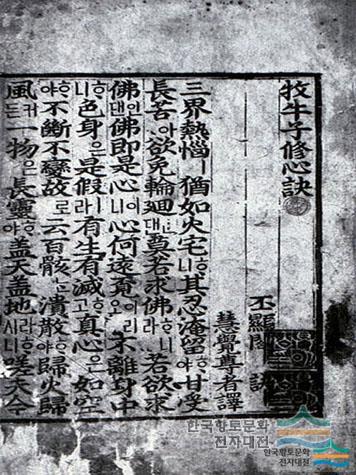 牧牛子修心訣
丕顯閤 訣
慧覺尊者譯
三界熱惱ㅣ猶如火宅ᄒᆞ니其忍淹留ᄒᆞ야甘受
長苦아欲免輪廻ㄴ댄莫若求佛ᄒᆞ니라若欲求
佛인댄佛即是心이니心何遠覓이리오不離身中
ᄒᆞ니色身은是假ㅣ라有生有滅ᄒᆞ고真心은如空
ᄒᆞ야不斷不變故로云百骸ᄂᆞᆫ潰散ᄒᆞ야歸火歸
風커든一物은長靈ᄒᆞ야盖天盖地라ᄒᆞ시니嗟夫今
한국향토문화
전자대전
한국향토문화
전자대전